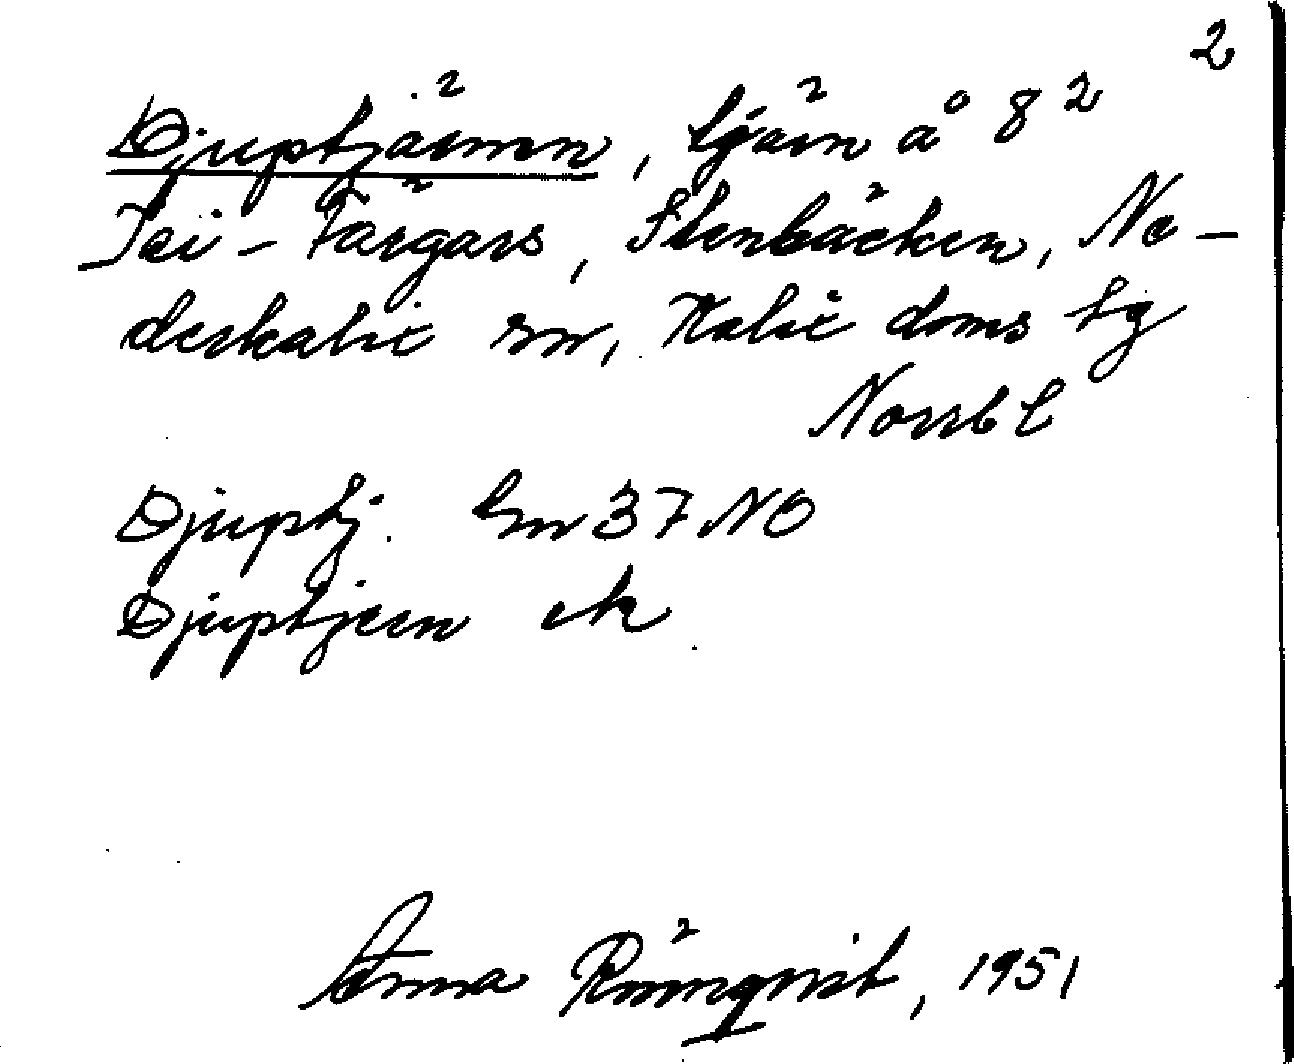 2
Djuptjärnen, tjärn å 8 2
Jei-Färgars, Stenbäcken, Ne-
derkalix sn, Kalix doms tg
Norrb l
Djuptj. Gm 37 NO
Djuptjern ek
Anna Rönnqvist, 1951